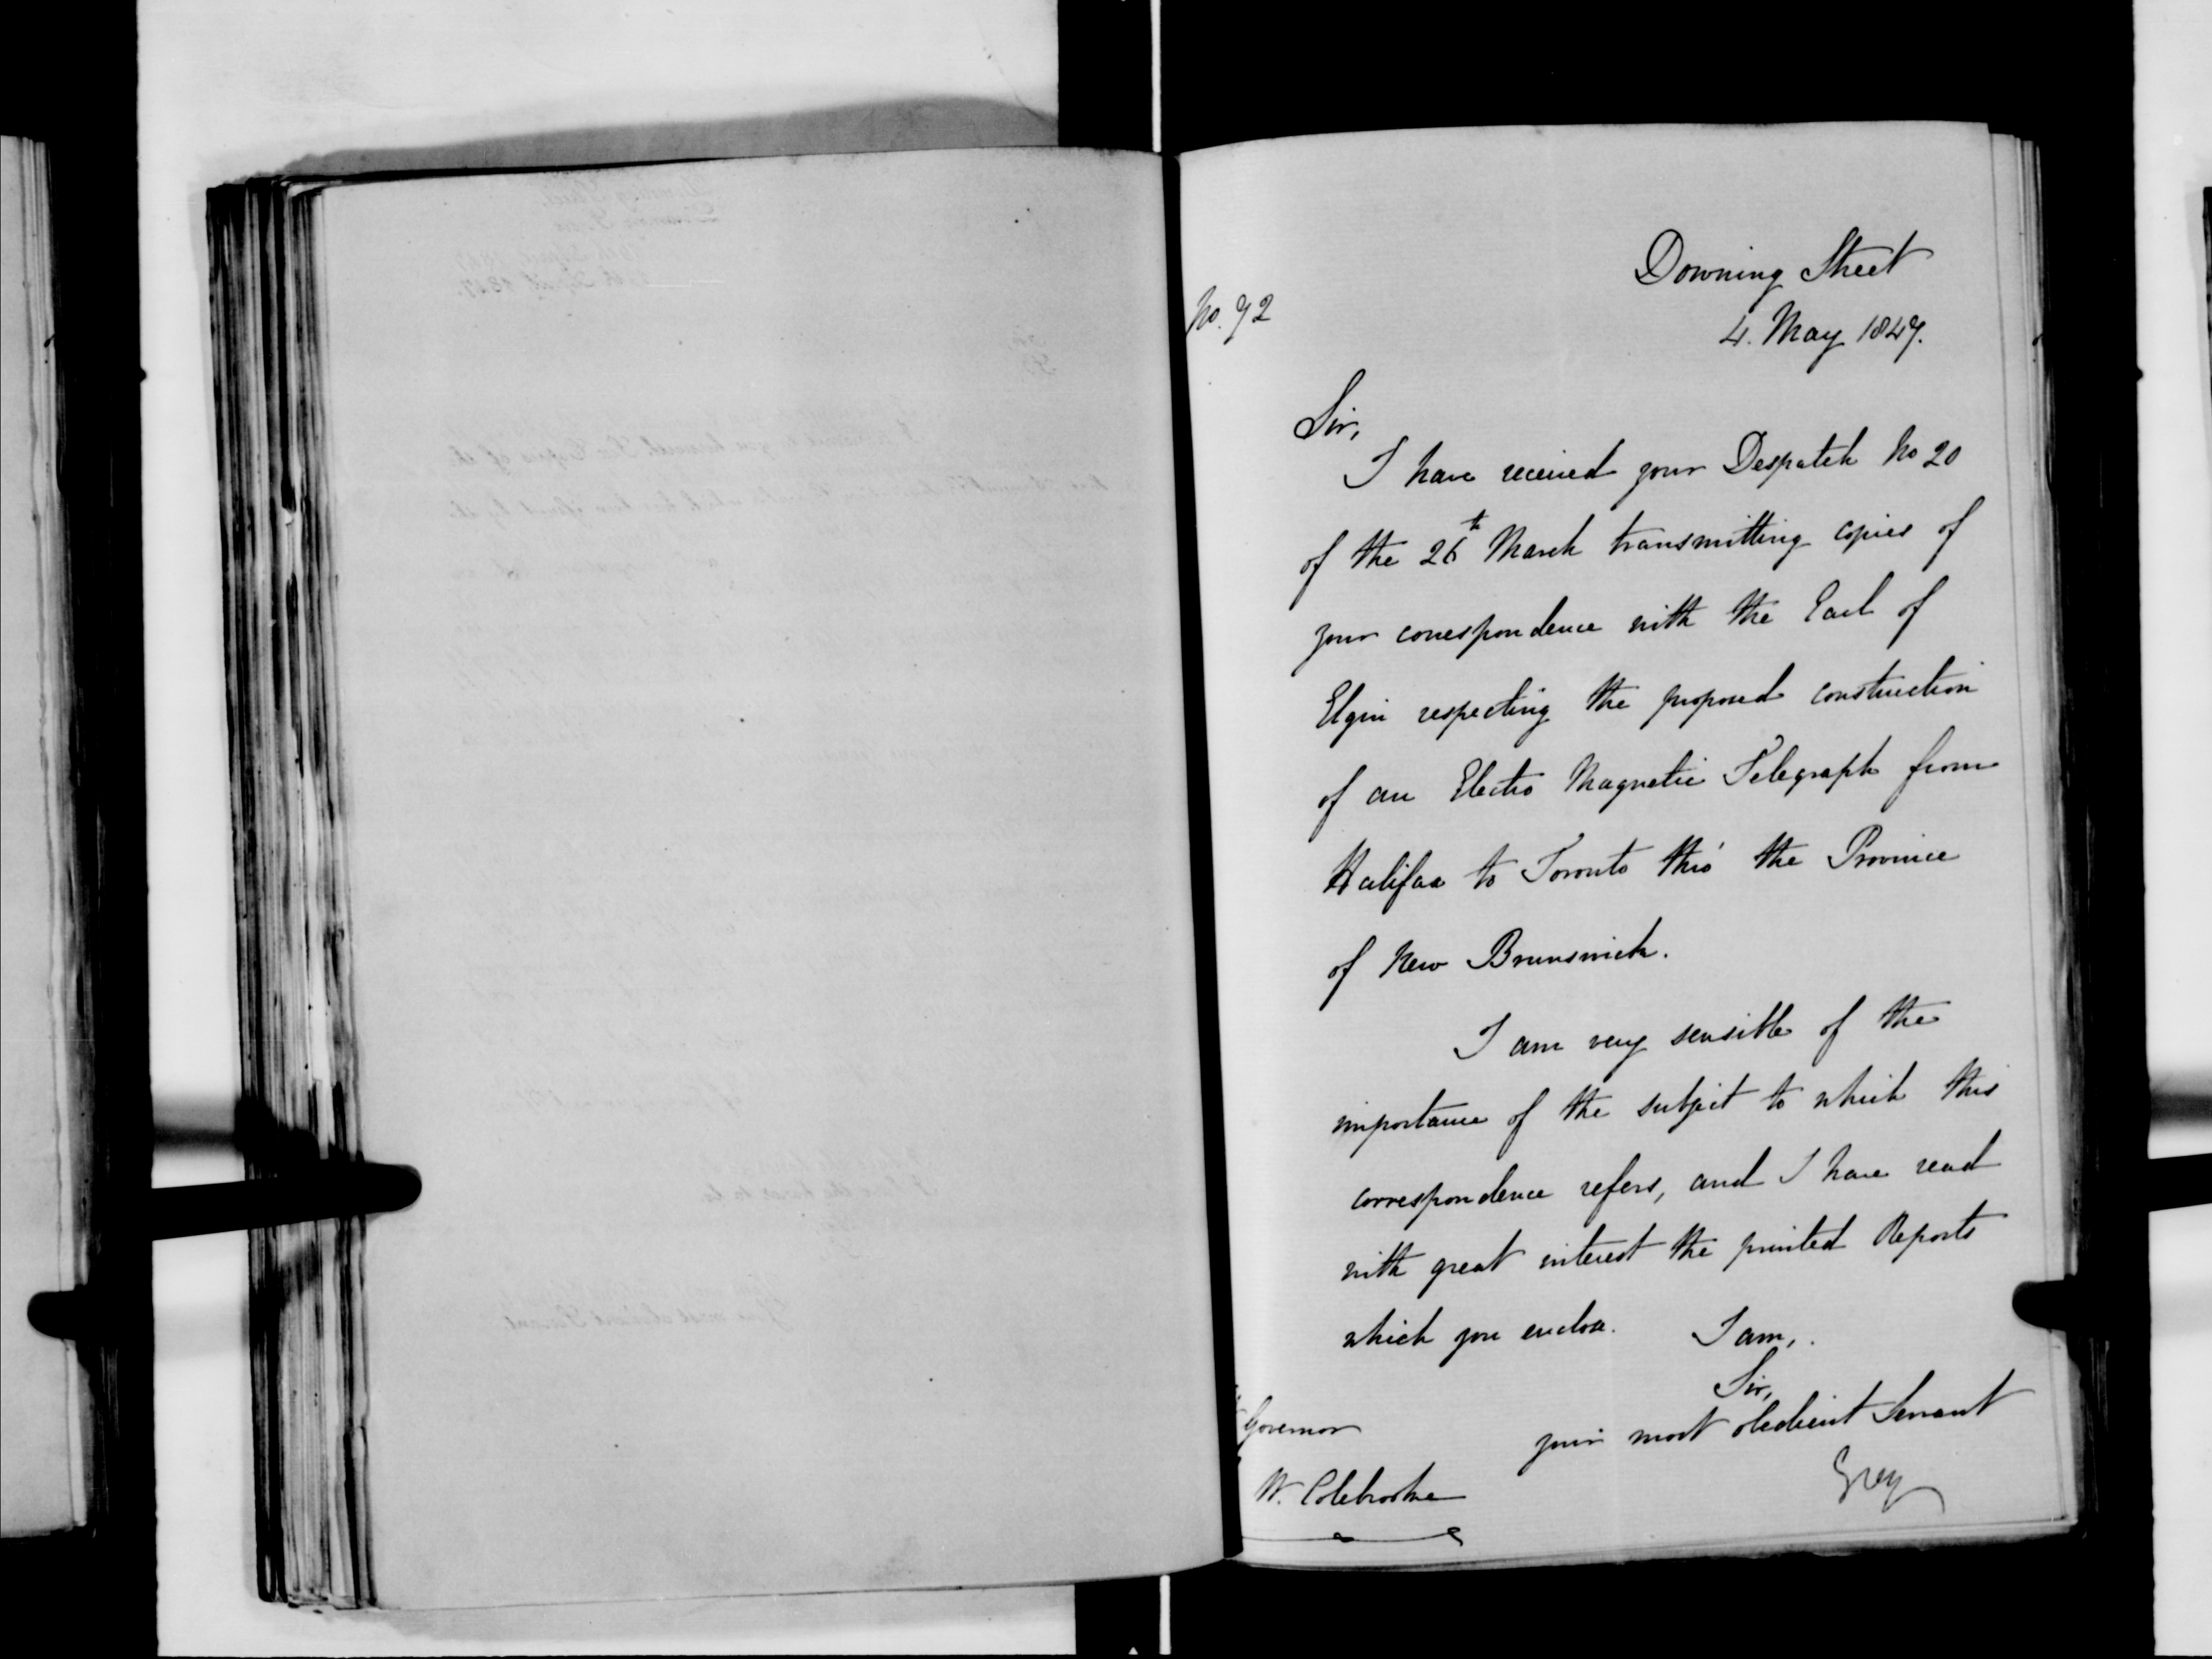 Downing Street
No. 72
4. May 1847.
Sir,
I have received your Despatch No 20
of the 26th March transmitting copies of
your correspondence with the Earl of
Elgin respecting the proposed construction
of an Electro Magnetic Telegraph from
Halifax to Toronto thro' the Province
of New Brunswick.
I am very sensible of the
importance of the subject to which this
correspondence refers, and I have read
with great interest the printed Reports
which you enclose. I am,
Sir,
your most obedient Servant
Grey
Governor
W. Colebrooke